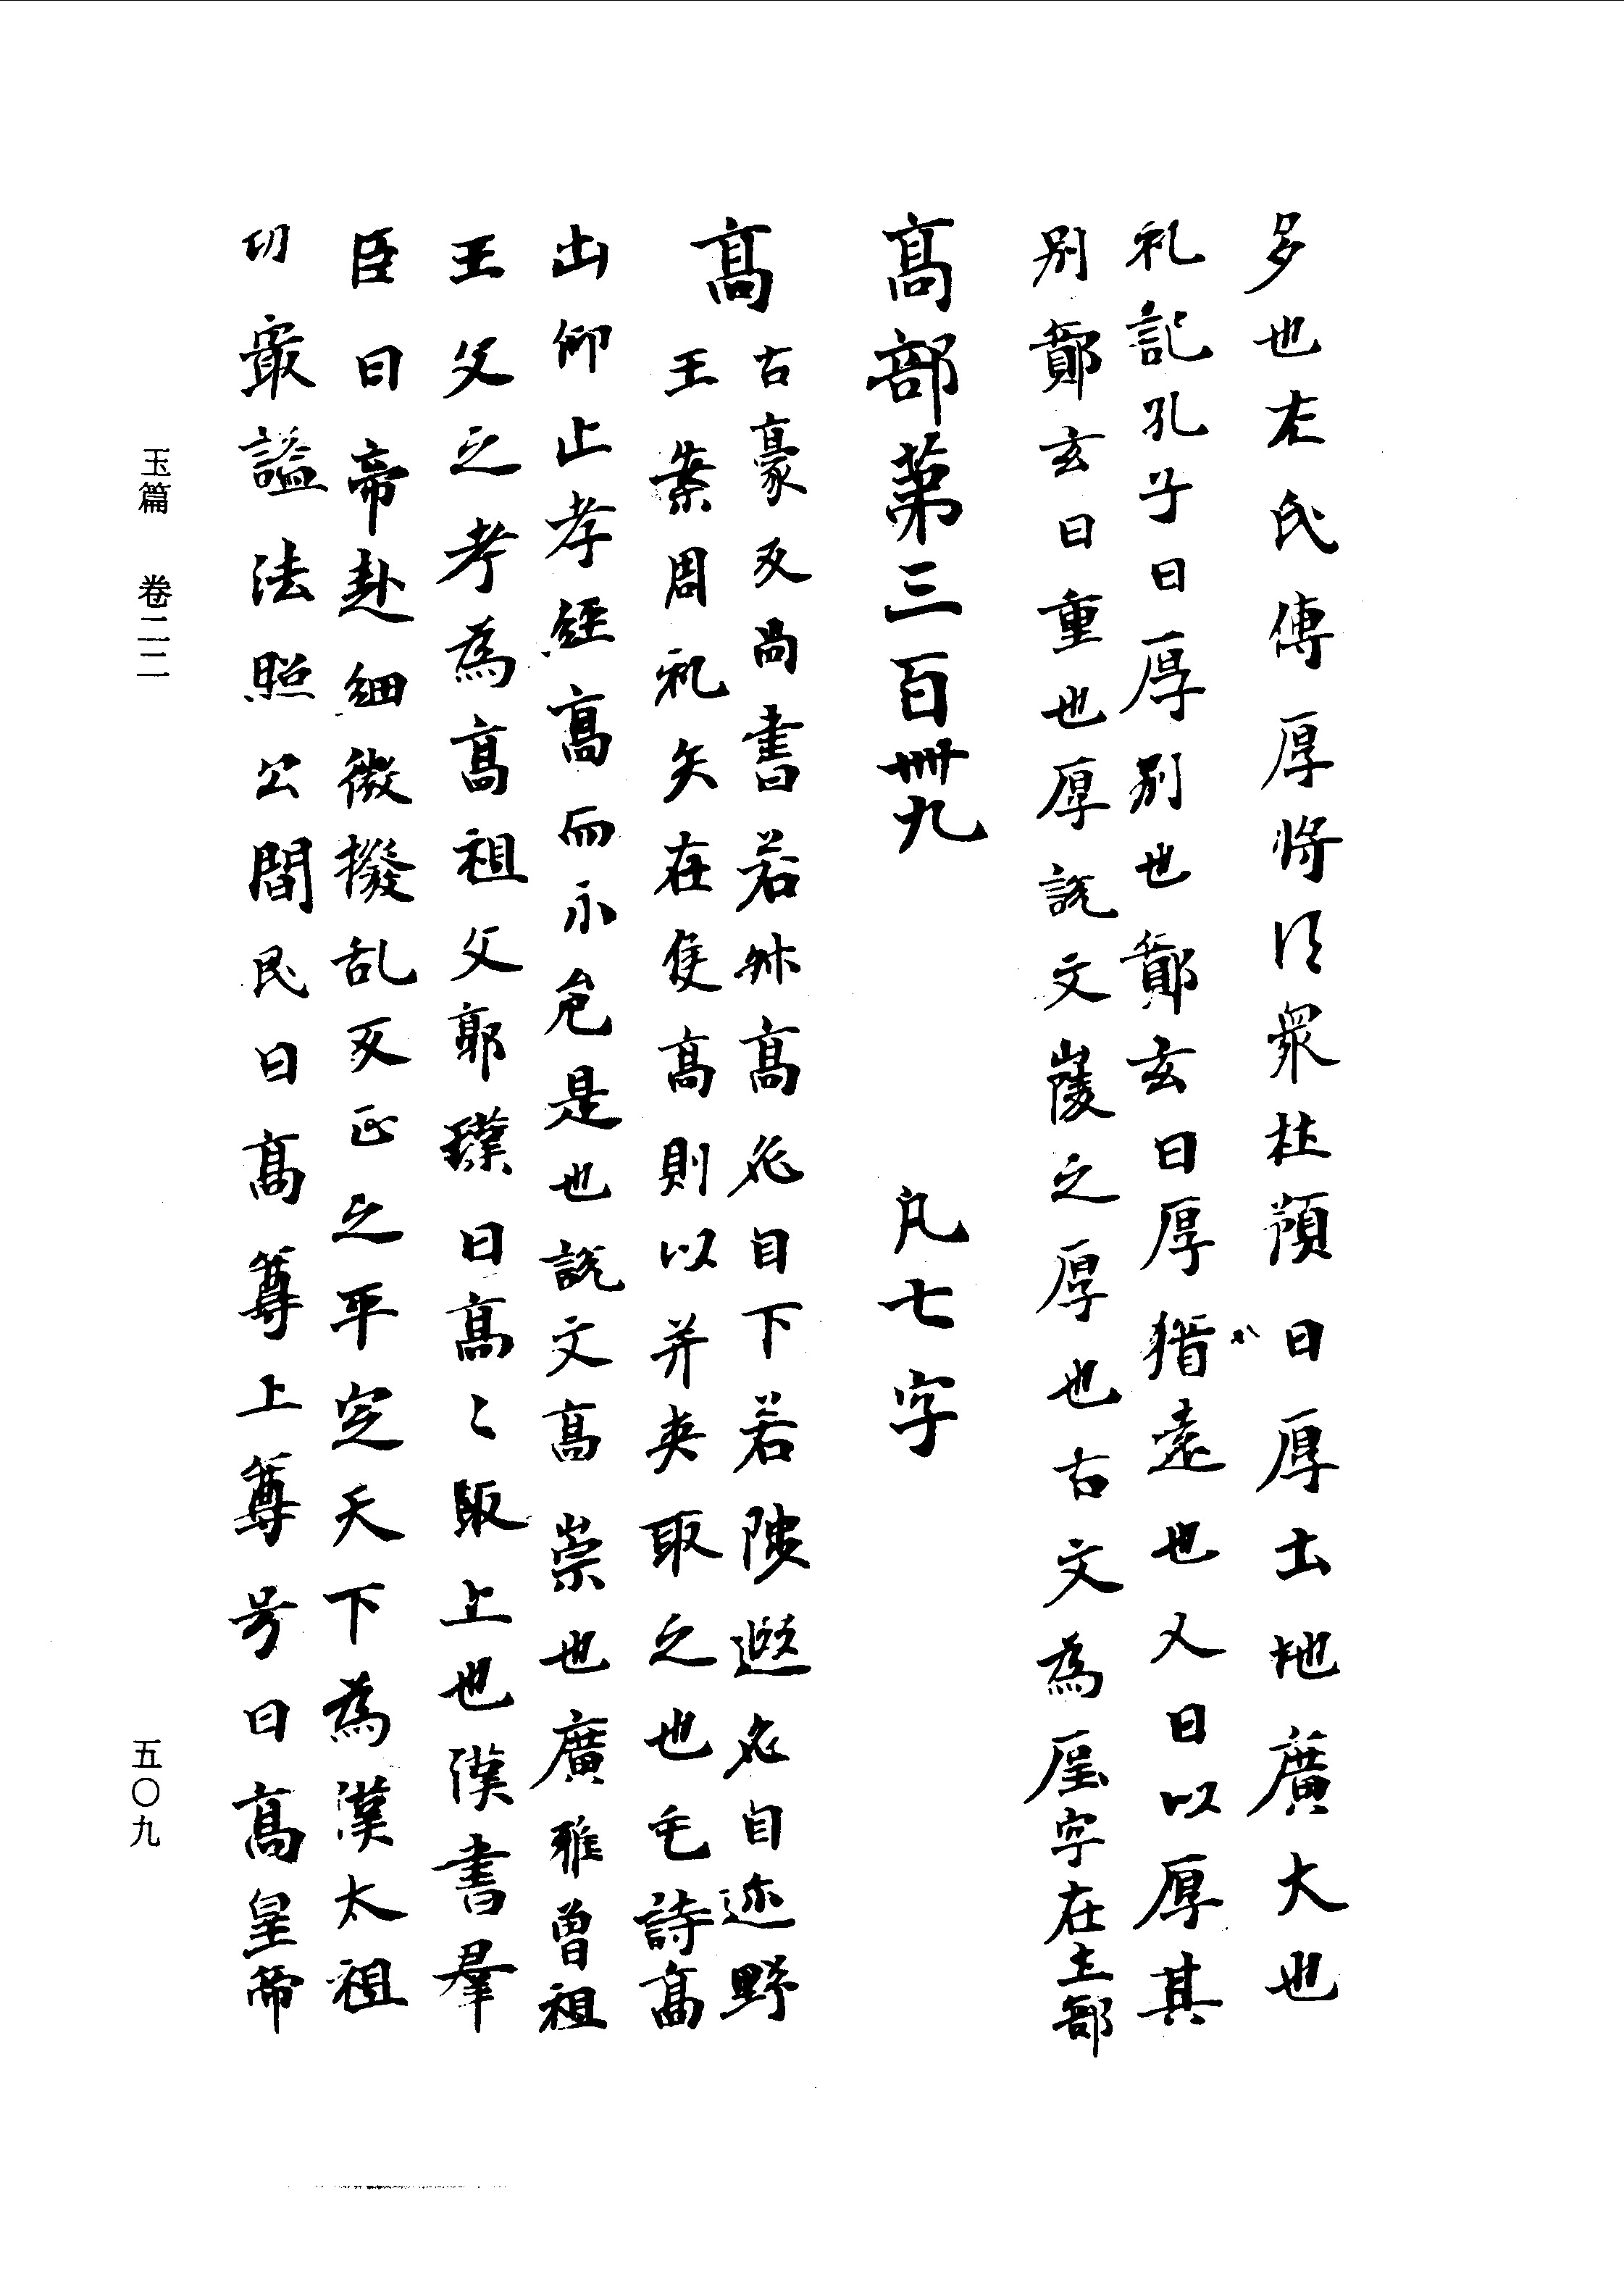 多也左氏傳厚將得衆杜預曰厚土地廣大也
礼記孔子曰厚別也鄭玄曰厚猶遠也又曰以厚其
別鄭玄曰重也厚說文山陵之厚也古文為垕字在土部
髙部第三百卌九 凡七字
髙 古豪反尚書若升髙必自下若陟遐必自迩野
王案周礼矢在侯髙則以并夾取之也毛詩髙
山仰止孝經髙而不危是也說文髙崇也廣雅曾祖
王父之考為髙祖父郭璞曰髙〻取上也漢書羣
臣曰帝起細微撥乱反正之平定天下為漢太祖
功最謚法照公間民曰髙尊上尊号曰髙皇帝
玉篇 卷二二
五〇九